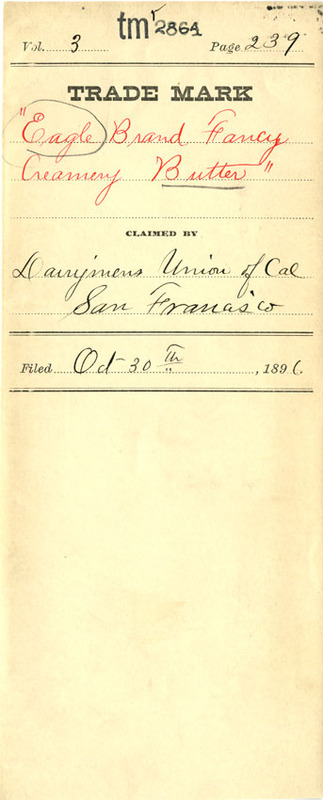 tm 2864
Vol. 3 Page 239
TRADE MARK
"Eagle Brand Fancy
Creamery Butter"
CLAIMED BY
Dairymens Union of Cal
San Francisco
Filed Oct 30th, 1896.